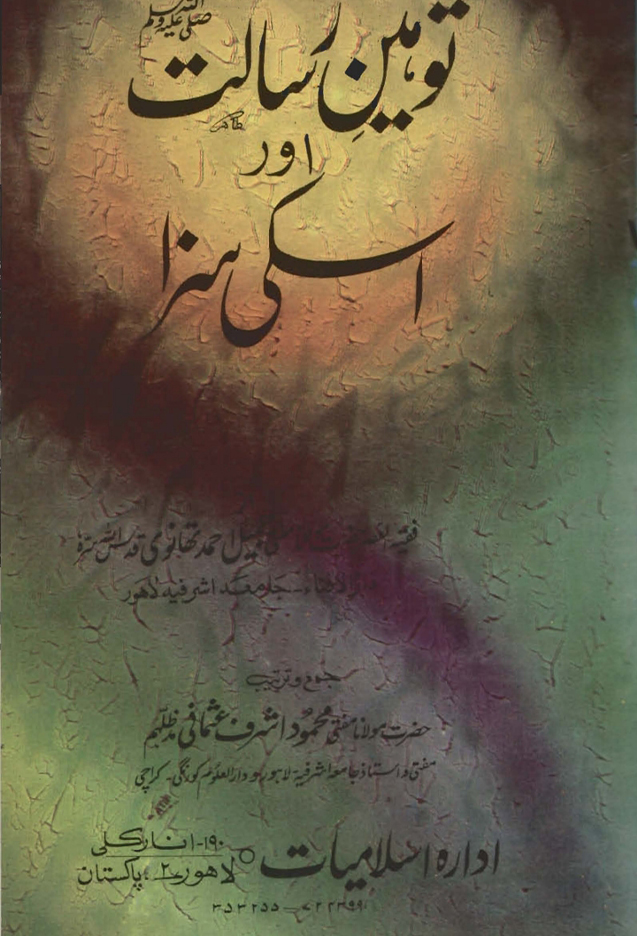 صلی اللہ علیہ وسلم
توہینِ رسالت
اور
اسکی سزا
جمیل احمد تھانوی قدس اللہ سرہٗ
جامعہ اشرفیہ لاہور
جمع و ترتیب
حضرت مولانا مفتی محمود اشرف عثمانی مدظلہم
مفتی و استاذ جامعہ اشرفیہ لاہور و دارالعلوم کورنگی۔ کراچی
ادارہ اسلامیات
۱۹۰- انارکلی
لاہور ۲، پاکستان